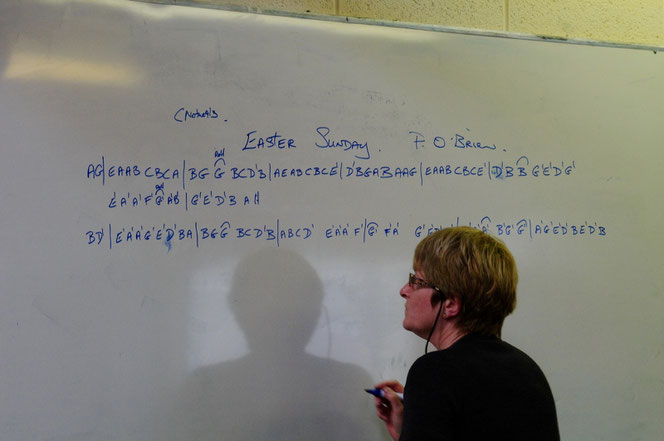 EASTER SUNDAY. P. O'BRIEN.
AG|EAAB CBCA|BG G BCD'B|AEAB CBCE'|D'BGABAAG|EAABCBCE'|D'BB G'E'D'G'
E'A'A'F'G'A'B'|G'E'D'B A||
BD'|E'A'A'G'E'D'BA|BGG BCD'B|ABCD' E'A'A'F'|G' F'A' A' B'G'G'|A'G'E'D'BE'D'B